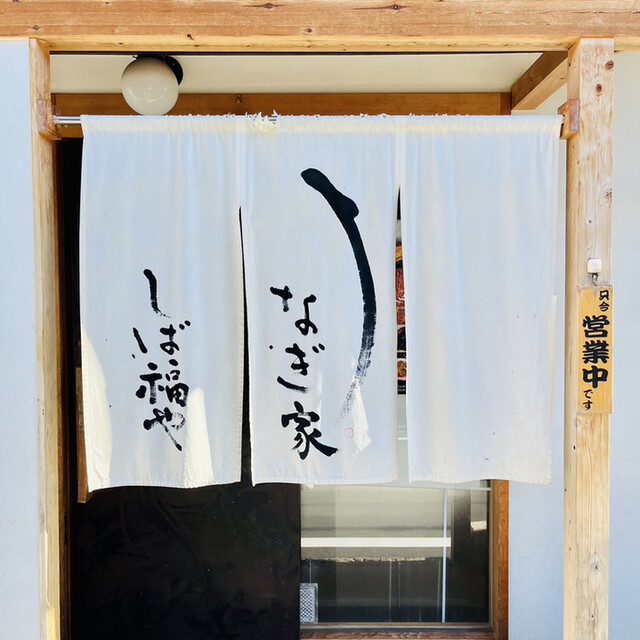 うなぎ家
しば福や
只今
営業中
です